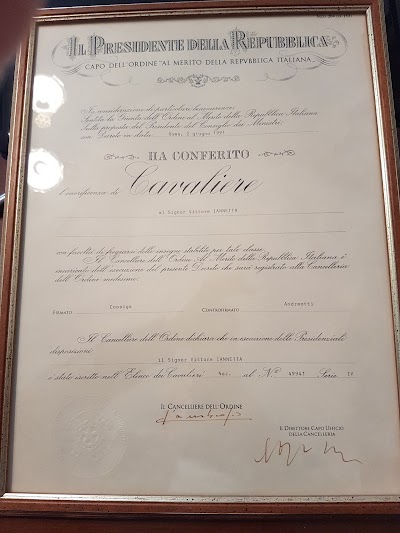 IL PRESIDENTE DELLA REPUBBLICA
CAPO DELL'ORDINE "AL MERITO DELLA REPVBBLICA ITALIANA"
In considerazione di particolari benemerenze;
Sentita la Giunta dell'Ordine al Merito della Repubblica Italiana
Sulla proposta del Presidente del Consiglio dei Ministri;
con Decreto in data Roma, 2 giugno 1991
HA CONFERITO
l'onorificenza di Cavaliere
al Signor Vittore IANNETTA
con facoltà di fregiarsi delle insegne stabilite per tale classe.
Il Cancelliere dell'Ordine Al Merito della Repubblica Italiana è
incaricato dell'esecuzione del presente Decreto che sarà registrato alla Cancelleria
dell'Ordine medesimo.
FIRMATO Cossiga CONTROFIRMATO Andreotti
Il Cancelliere dell'Ordine dichiara che in esecuzione delle Presidenziali
disposizioni
il Signor Vittore IANNETTA
è stato iscritto nell'Elenco dei Cavalieri Naz. al N.° Serie IV
IL CANCELLIERE DELL'ORDINE
IL DIRETTORE CAPO UFFICIO
DELLA CANCELLERIA